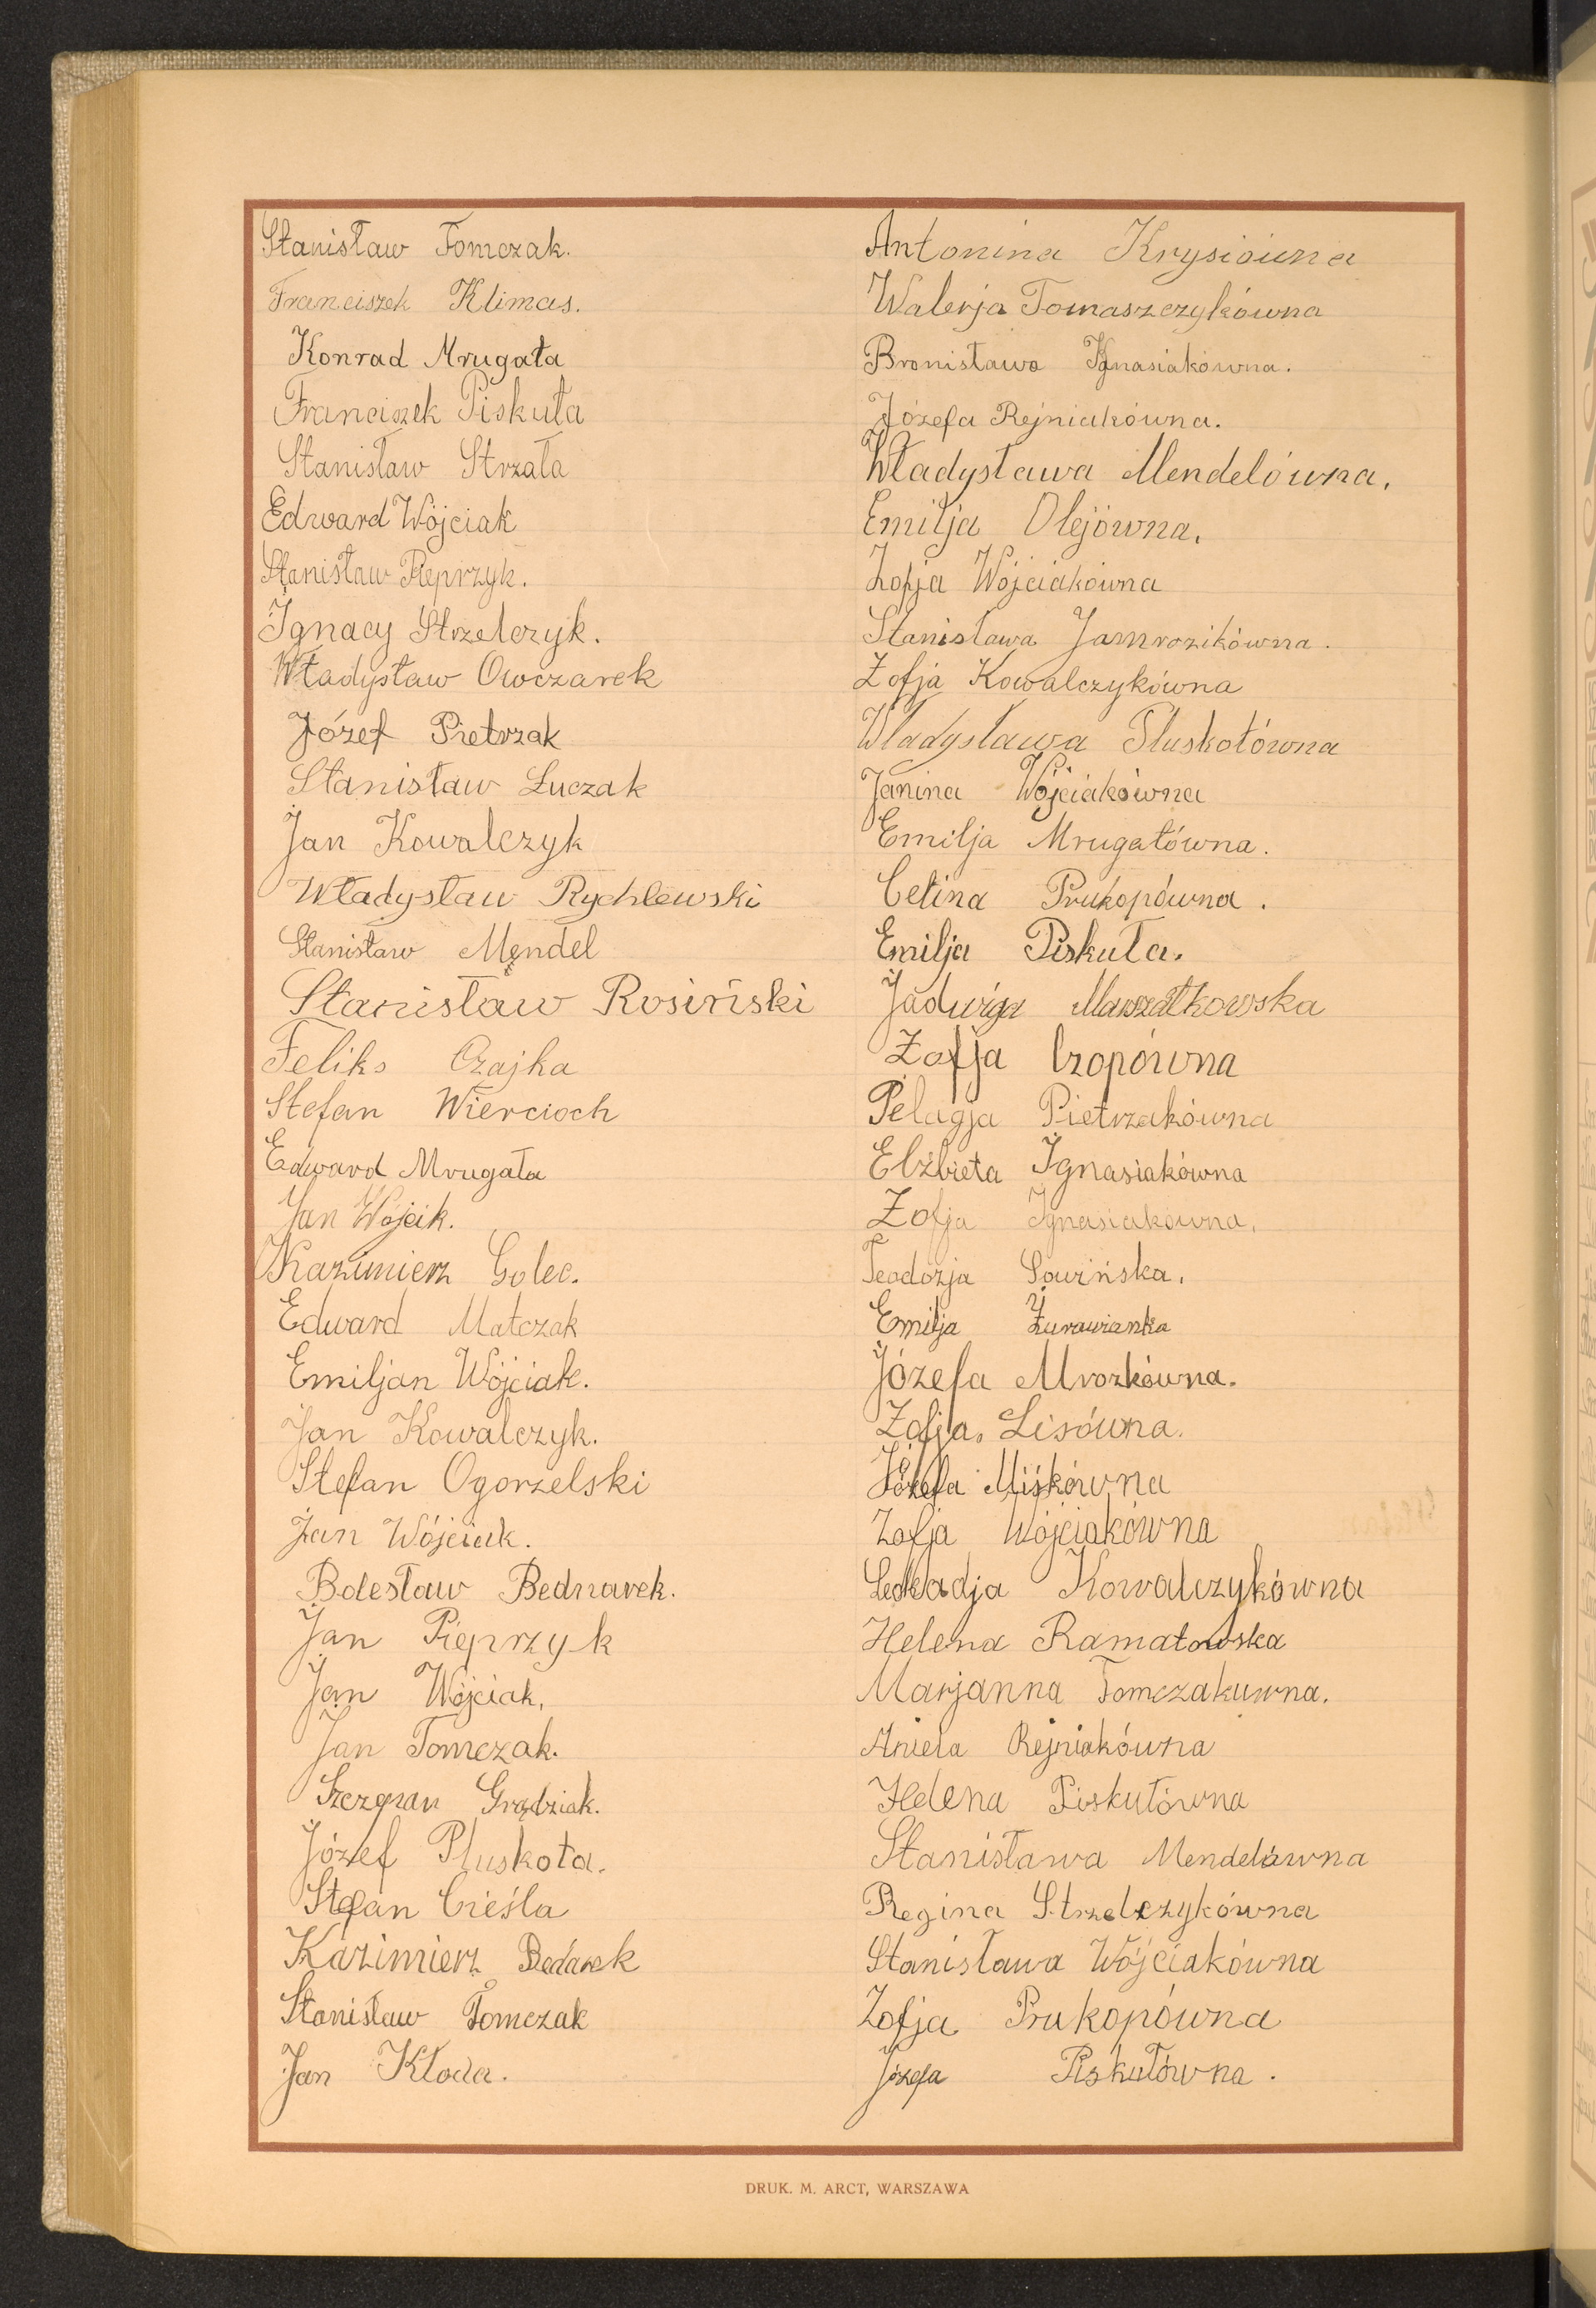 Stanisław Tomczak.
Franciszek Klimas.
Konrad Mrugała
Franciszek Piskuła
Stanisław Strzała
Edward Wójciak
Stanisław Pieprzyk.
Ignacy Strzelczyk.
Władysław Owczarek
Józef Pietrzak
Stanisław Łuczak
Jan Kowalczyk
Władysław Rychlewski
Stanisław Mendel
Stanisław Rosiński
Feliks Czajka
Stefan Wiercioch
Edward Mrugała
Jan Wójcik.
Kazimierz Golec.
Edward Matczak
Emiljan Wójciak.
Jan Kowalczyk.
Stefan Ogorzelski
Jan Wójciak.
Bolesław Bednarek.
Jan Pieprzyk
Jan Wójciak.
Jan Tomczak.
Szczepan Grądziak.
Józef Pluskota.
Stefan Cieśla
Kazimierz Bedarek
Stanisław Tomczak
Jan Kłoda.
Antonina Krysiówna
Walerja Tomaszczykówna
Bronisława Ignasiakówna.
Józefa Rejniakówna.
Władysława Mendelówna.
Emilja Olejówna.
Zofja Wójciakówna
Stanisława Jamrozikówna.
Zofja Kowalczykówna
Władysława Pluskotówna
Janina Wójciakówna
Emilja Mrugałówna.
Celina Prukopówna.
Emilja Piskuła.
Jadwiga Marszałkowska
Zofja Czopówna
Pelagja Pietrzakówna
Elżbieta Ignasiakówna
Zofja Ignasiakówna.
Teodozja Sowińska.
Emilja Żurawianka
Józefa Mrozkówna.
Zofja. Lisówna.
Józefa Miśkówna
Zofja Wójciakówna
Leokadja Kowalczykówna
Helena Ramatowska
Marjanna Tomczakuwna.
Aniela Rejniakówna
Helena Piskułówna
Stanisława Mendelówna
Regina Strzelczykówna
Stanisława Wójciakówna
Zofja Prukopówna
Józefa Piskułówna.
DRUK. M. ARCT, WARSZAWA